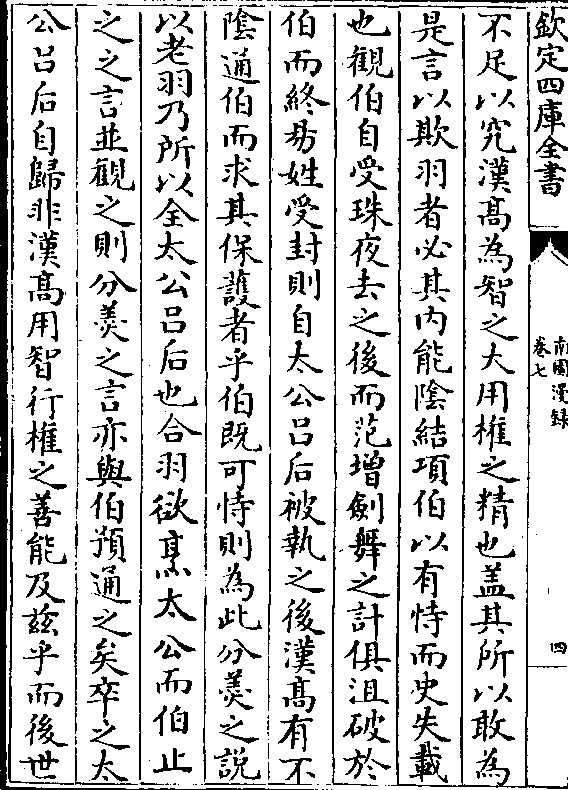 欽定四庫全書
南園漫録
卷七
四
不足以究漢髙為智之大用權之精也盖其所以敢為
是言以欺羽者必其内能陰結項伯以有恃而史失載
也觀伯自受珠夜去之後而范增劍舞之計俱沮破於
伯而終昜姓受封則自太公吕后被執之後漢髙有不
隂通伯而求其保䕶者乎伯既可恃則為此分羮之說
以老羽乃所以全太公吕后也合羽欲烹太公而伯止
之之言並觀之則分羮之言亦與伯預通之矣卒之太
公吕后自歸非漢髙用智行權之善能及兹乎而後世